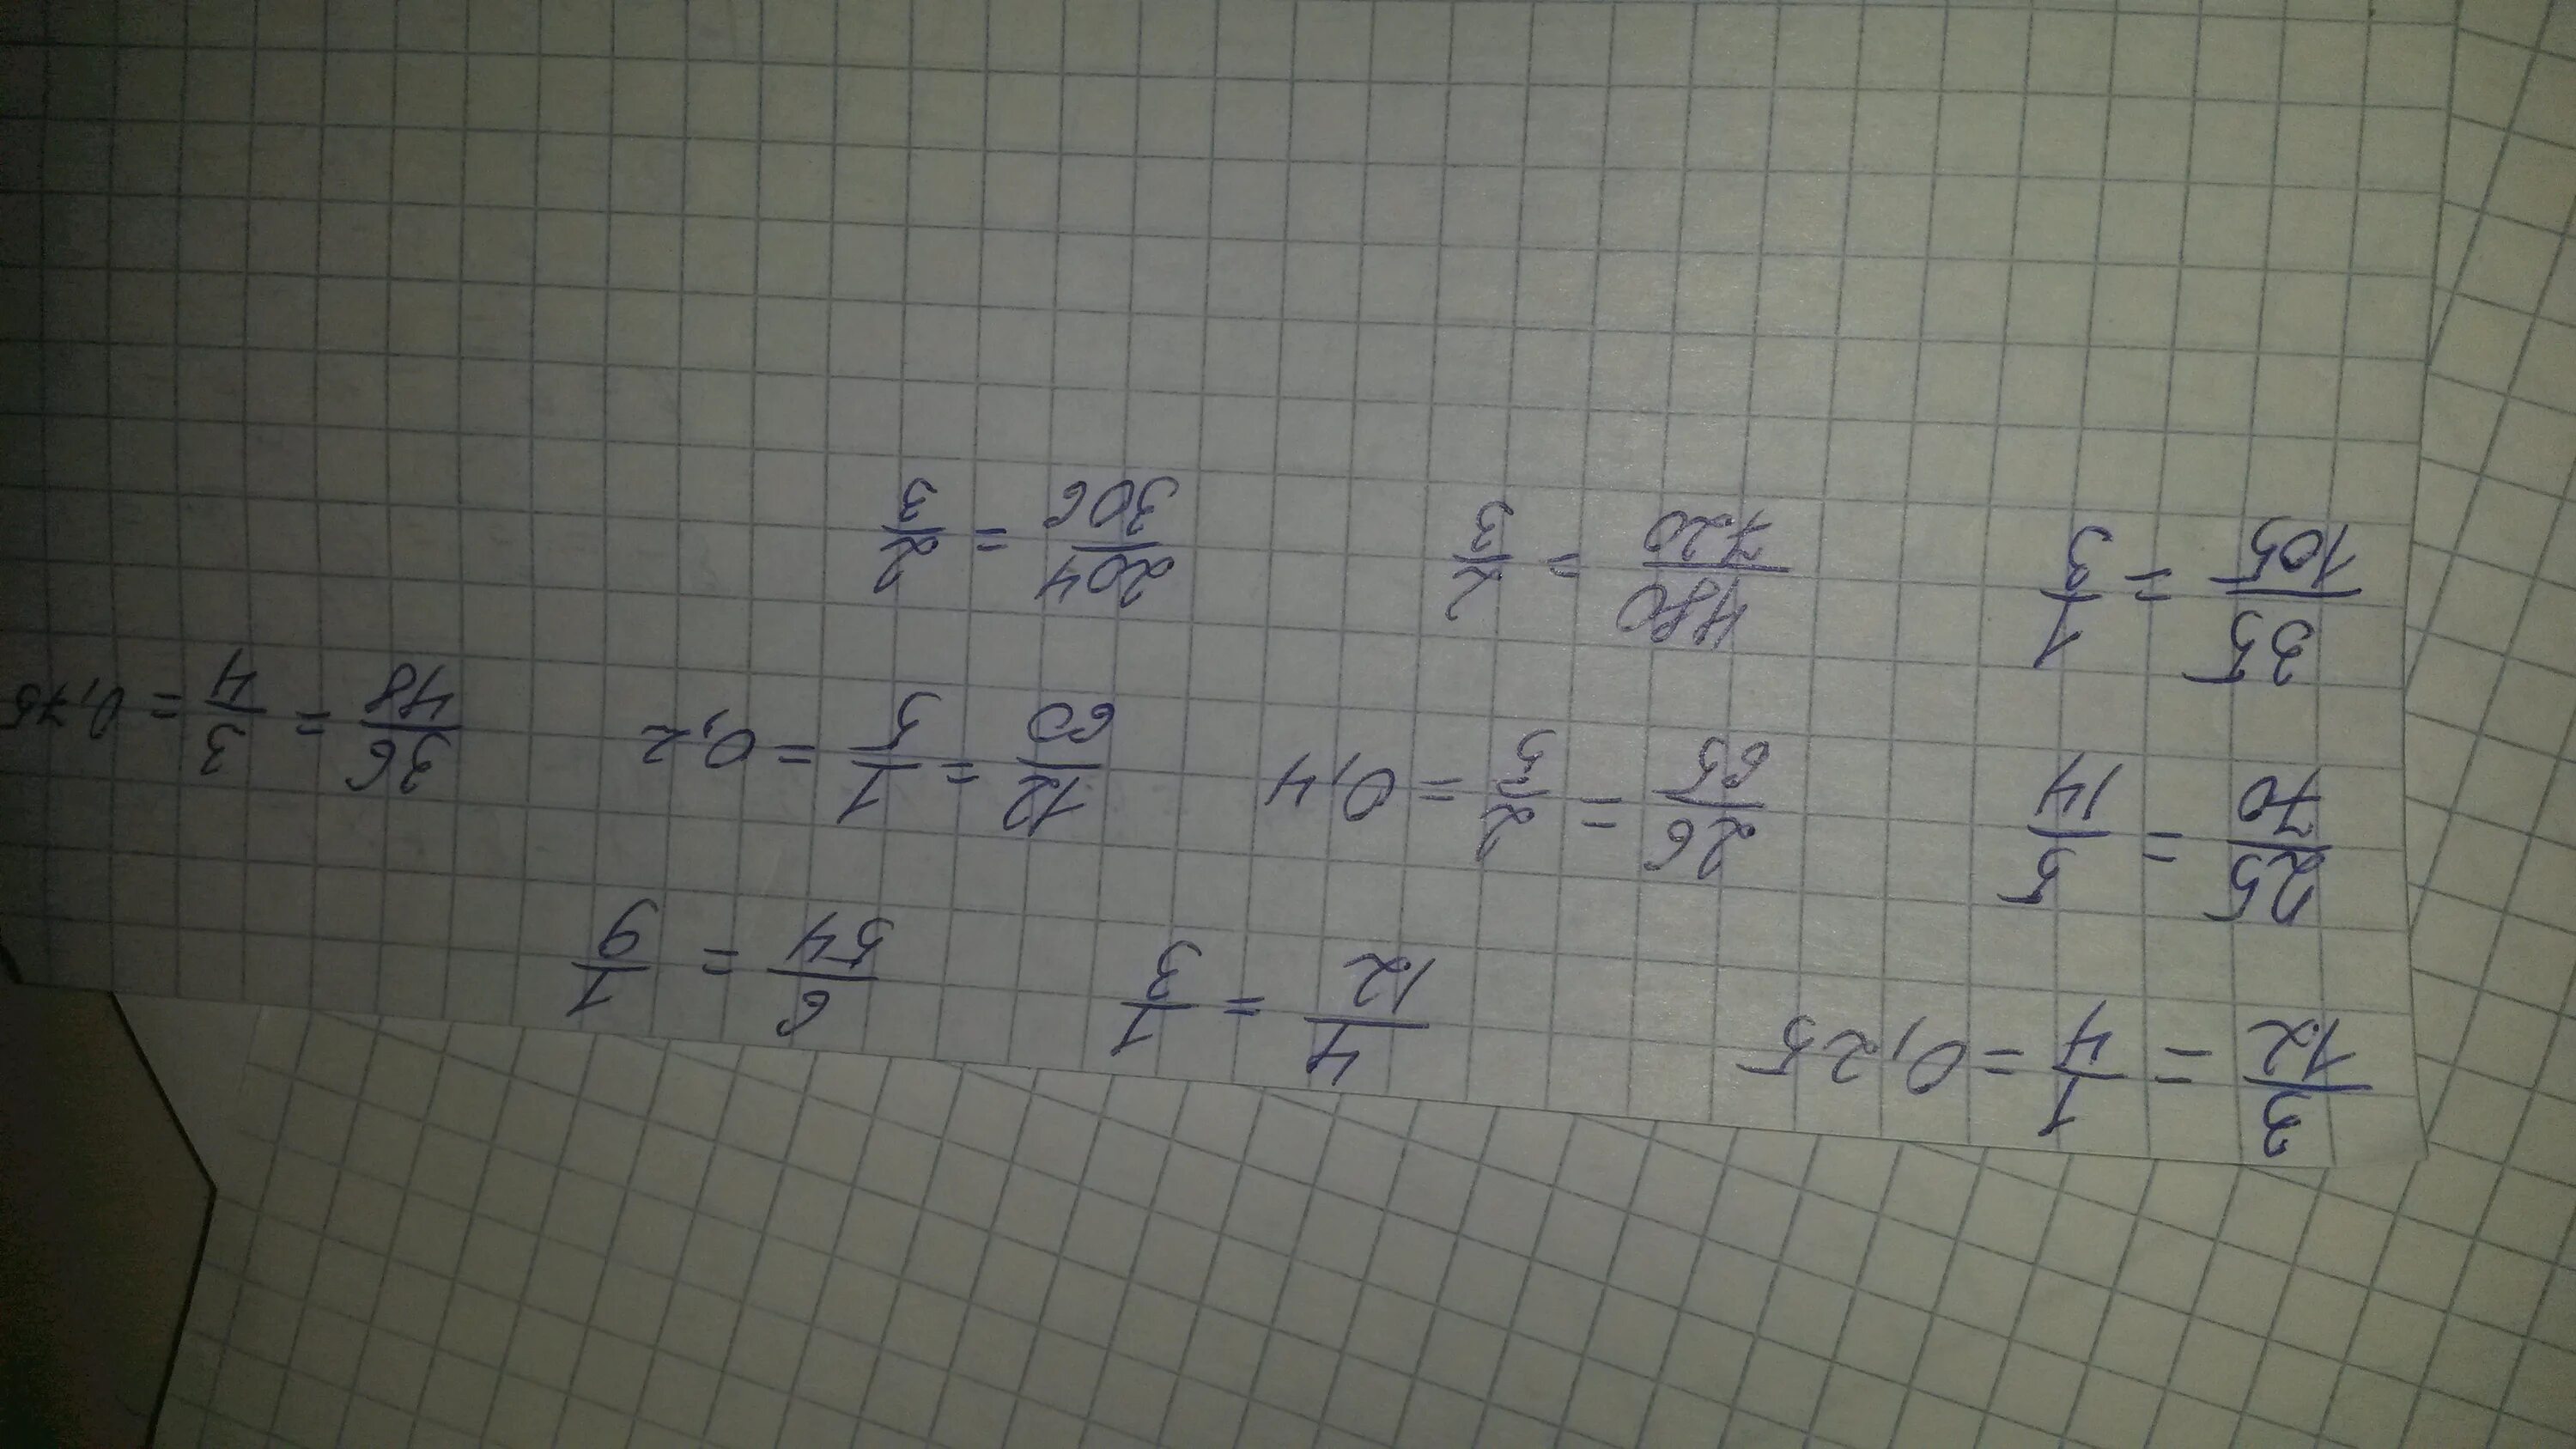 3/12 = 1/4 = 0,25 4/12 = 1/3 6/54 = 1/9
25/70 = 5/14 26/65 = 2/5 = 0,4 12/60 = 1/5 = 0,2 36/48 = 3/4 = 0,75
35/105 = 1/3 480/720 = 2/3 204/306 = 2/3